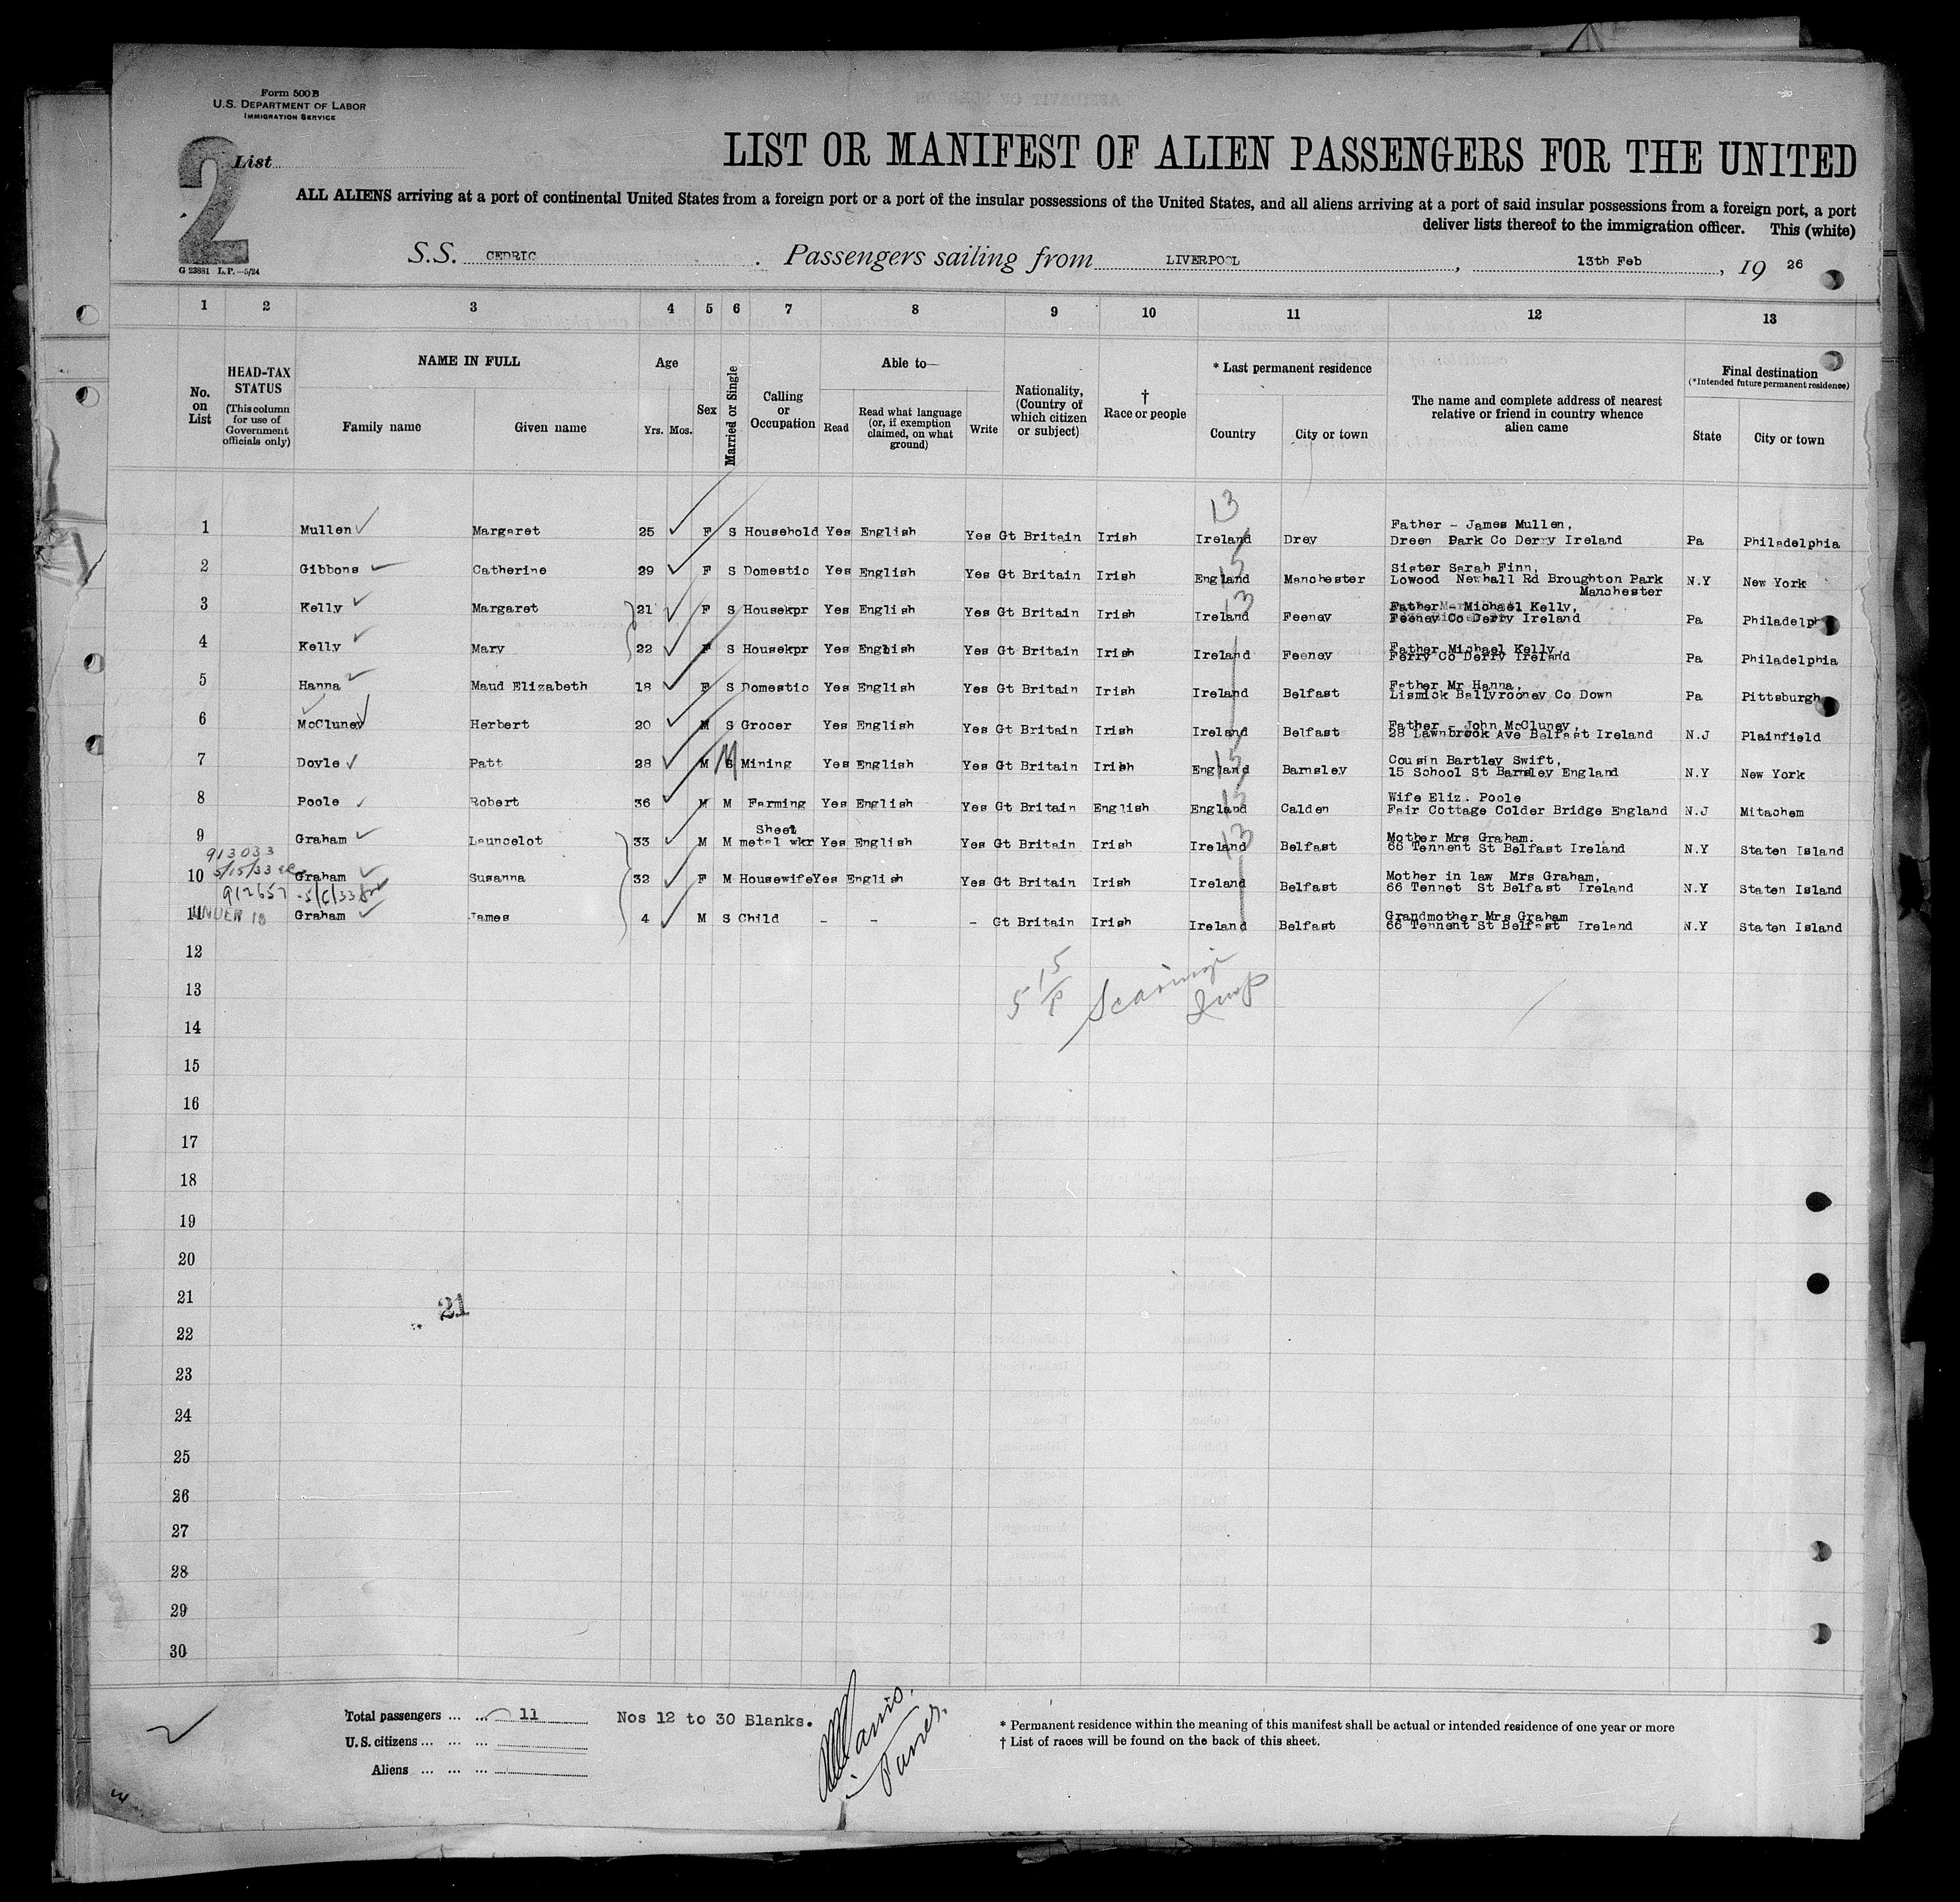 Form 500 B
U.S. DEPARTMENT OF LABOR
IMMIGRATION SERVICE
2 List
LIST OR MANIFEST OF ALIEN PASSENGERS FOR THE UNITED
ALL ALIENS arriving at a port of continental United States from a foreign port or a port of the insular possessions of the United States, and all aliens arriving at a port of said insular possessions from a foreign port, a port
deliver lists thereof to the immigration officer. This (white)
G 23881 L.P.—5/24
S.S. CEDRIC . Passengers sailing from LIVERPOOL , 13th Feb , 19 26
1 2 3 4 5 6 7 8 9 10 11 12 13
No. on List
HEAD-TAX STATUS
(This column for use of Government officials only)
NAME IN FULL
Family name Given name
Age
Yrs. Mos.
Sex
Married or Single
Calling or Occupation
Able to—
Read
Read what language (or, if exemption claimed, on what ground)
Write
Nationality, (Country of which citizen or subject)
† Race or people
* Last permanent residence
Country City or town
The name and complete address of nearest relative or friend in country whence alien came
Final destination
(*Intended future permanent residence)
State City or town
13
1 Mullen Margaret 25 F S Household Yes English Yes Gt Britain Irish Ireland Drey Father - James Mullen, Dreen Park Co Derry Ireland Pa Philadelphia
2 Gibbons Catherine 29 F S Domestic Yes English Yes Gt Britain Irish England Manchester Sister Sarah Finn, Lowood Newhall Rd Broughton Park Manchester N.Y New York
3 Kelly Margaret 21 F S Housekpr Yes English Yes Gt Britain Irish Ireland Feeney Father - Michael Kelly, Feeney Co Derry Ireland Pa Philadelph
4 Kelly Mary 22 F S Housekpr Yes English Yes Gt Britain Irish Ireland Feeney Father Michael Kelly, Ferry Co Derry Ireland Pa Philadelphia
5 Hanna Maud Elizabeth 18 F S Domestic Yes English Yes Gt Britain Irish Ireland Belfast Father Mr Hanna, Lismick Ballyrooney Co Down Pa Pittsburgh
6 McCluney Herbert 20 M S Grocer Yes English Yes Gt Britain Irish Ireland Belfast Father - John McCluney, 28 Lawnbrook Ave Belfast Ireland N.J Plainfield
7 Doyle Patt 28 M M Mining Yes English Yes Gt Britain Irish England Barnsley Cousin Bartley Swift, 15 School St Barnsley England N.Y New York
8 Poole Robert 36 M M Farming Yes English Yes Gt Britain English England Calden Wife Eliz. Poole Fair Cottage Colder Bridge England N.J Mitachem
9 Graham Launcelot 33 M M Sheet metal wkr Yes English Yes Gt Britain Irish Ireland Belfast Mother Mrs Graham. 66 Tennent St Belfast Ireland N.Y Staten Island
913033
5/15/33
10 Graham Susanna 32 F M Housewife Yes English Yes Gt Britain Irish Ireland Belfast Mother in law Mrs Graham, 66 Tennet St Belfast Ireland N.Y Staten Island
912657
UNDER 18
11 Graham James 4 M S Child - - - Gt Britain Irish Ireland Belfast Grandmother Mrs Graham 66 Tennent St Belfast Ireland N.Y Staten Island
12
13
14
15
16
17
18
19
20
21
21
22
23
24
25
26
27
28
29
30
Total passengers ... ... 11 Nos 12 to 30 Blanks.
U.S. citizens ... ... ...
Aliens ... ... ...
* Permanent residence within the meaning of this manifest shall be actual or intended residence of one year or more
† List of races will be found on the back of this sheet.